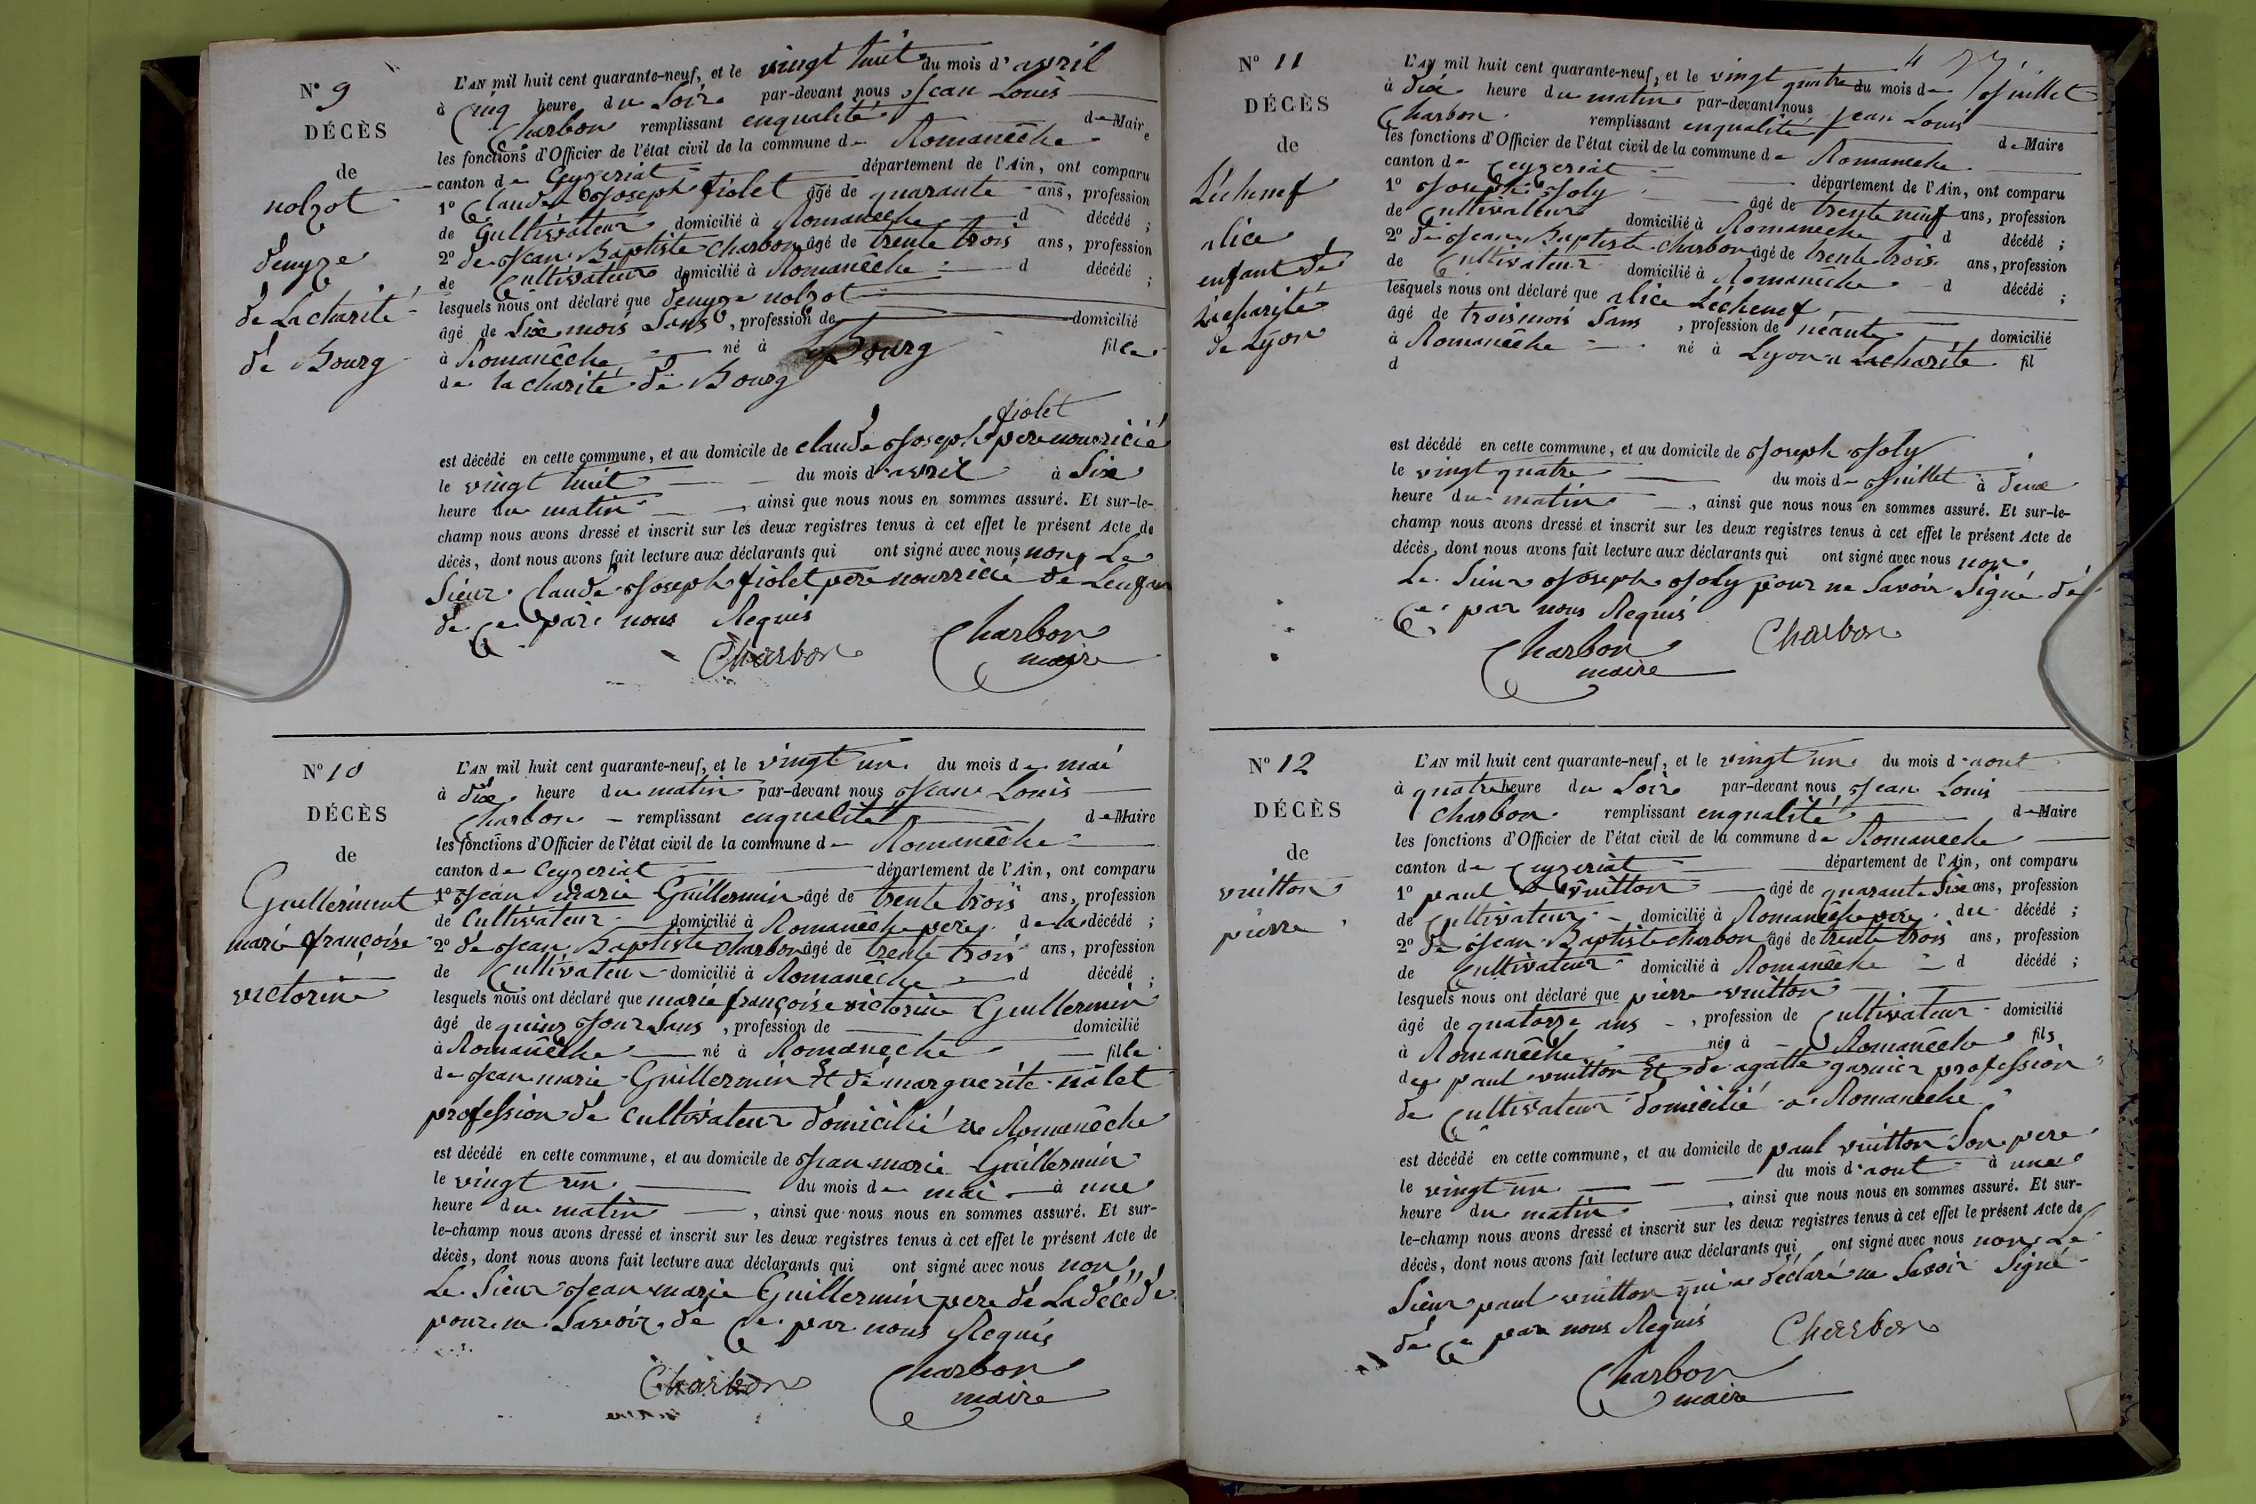 N° 9
DÉCÈS
de
nolzot
denyze
de La charité
de Bourg
L'AN mil huit cent quarante-neuf, et le vingt huit du mois d'avril
à Cinq heure du Soire par-devant nous Jean Louis
Charbon remplissant enqualité de Maire
les fonctions d'Officier de l'état civil de la commune de Romanêche
canton de Ceyzeriat département de l'Ain, ont comparu
1° Claude Joseph fiolet âgé de quarante ans, profession
de Cultivateur domicilié à Romanêche d décédé ;
2° de Jean Baptiste Charbon âgé de trente trois ans, profession
de Cultivateur domicilié à Romanêche d décédé ;
lesquels nous ont déclaré que denyze nolzot
âgé de Six mois Sans, profession de domicilié
à Romanêche né à Bourg fille
de la charité de Bourg
fiolet
est décédé en cette commune, et au domicile de claude Joseph pere nourricié
le vingt huit du mois d'avril à Six
heure du matin, ainsi que nous nous en sommes assuré. Et sur-le-
champ nous avons dressé et inscrit sur les deux registres tenus à cet effet le présent Acte de
décès, dont nous avons fait lecture aux déclarants qui ont signé avec nous non Le
Sieur Claude Joseph fiolet pere nourricié de Lenfan
de Ce par nous Requis
Charbon Charbon
maire
N° 10
DÉCÈS
de
Guillerminet
marie françoise
victorine
L'AN mil huit cent quarante-neuf, et le vingt un du mois de mai
à dix heure du matin par-devant nous Jean Louis
Charbon remplissant enqualité de Maire
les fonctions d'Officier de l'état civil de la commune de Romanêche
canton de Ceyzeriat département de l'Ain, ont comparu
1° Jean marie Guillermin âgé de trente trois ans, profession
de Cultivateur domicilié à Romanêche pere de la décédé ;
2° de Jean Baptiste Charbon âgé de trente trois ans, profession
de Cultivateur domicilié à Romanêche d décédé ;
lesquels nous ont déclaré que marie françoise victorine Guillermin
âgé de quinz Jour Sans, profession de domicilié
à Romanêche né à Romanêche fille
de Jean marie Guillermin Et de marguerite nalet
profession de Cultivateur domicilié a Romanêche
est décédé en cette commune, et au domicile de Jean marie Guillermin
le vingt un du mois de mai à une
heure du matin, ainsi que nous nous en sommes assuré. Et sur-
le-champ nous avons dressé et inscrit sur les deux registres tenus à cet effet le présent Acte de
décès, dont nous avons fait lecture aux déclarants qui ont signé avec nous non
Le Sieur Jean marie Guillermin pere de La décédé
pour ne Savoir de Ce par nous Requis
Charbon Charbon
maire
N° 11
DÉCÈS
de
Léchenef
alice
enfant de
La charité
de Lyon
L'AN mil huit cent quarante-neuf, et le vingt quatre du mois de Juillet
à dix heure du matin par-devant nous Jean Louis
Charbon remplissant enqualité de Maire
les fonctions d'Officier de l'état civil de la commune de Romaneche
canton de Ceyzeriat département de l'Ain, ont comparu
1° Joseph Joly âgé de trente neuf ans, profession
de Cultivateur domicilié à Romaneche d décédé ;
2° de Jean Baptiste Charbon âgé de trente trois ans, profession
de Cultivateur domicilié à Romanêche d décédé ;
lesquels nous ont déclaré que alice Léchenef
âgé de trois mois Sans, profession de néante domicilié
à Romanêche né à Lyon a La charité fil
d
est décédé en cette commune, et au domicile de Joseph Joly
le vingt quatre du mois de Juillet à deux
heure du matin, ainsi que nous nous en sommes assuré. Et sur-le-
champ nous avons dressé et inscrit sur les deux registres tenus à cet effet le présent Acte de
décès, dont nous avons fait lecture aux déclarants qui ont signé avec nous non
Le Sieur Joseph Joly pour ne Savoir Signé de
Ce par nous Requis
Charbon Charbon
maire
N° 12
DÉCÈS
de
vuitton
pierre
L'AN mil huit cent quarante-neuf, et le vingt un du mois d'aout
à quatre heure du Soire par-devant nous Jean Louis
Charbon remplissant enqualité de Maire
les fonctions d'Officier de l'état civil de la commune de Romaneche
canton de Ceyzeriat département de l'Ain, ont comparu
1° paul vuitton âgé de quarante Six ans, profession
de Cultivateur domicilié à Romanêche pere du décédé ;
2° de Jean Baptiste Charbon âgé de trente trois ans, profession
de Cultivateur domicilié à Romanêche d décédé ;
lesquels nous ont déclaré que pierre vuitton
âgé de quatorze ans, profession de Cultivateur domicilié
à Romanêche né à Romanêche fils
de paul vuitton Et de agatte garnier profession
de Cultivateur domicilié a Romaneche
est décédé en cette commune, et au domicile de paul vuitton Son pere
le vingt un du mois d'aout à une
heure du matin, ainsi que nous nous en sommes assuré. Et sur-
le-champ nous avons dressé et inscrit sur les deux registres tenus à cet effet le présent Acte de
décès, dont nous avons fait lecture aux déclarants qui ont signé avec nous non Le
Sieur paul vuitton qui a déclaré ne Savoir Signé
de Ce par nous Requis
Charbon Charbon
maire